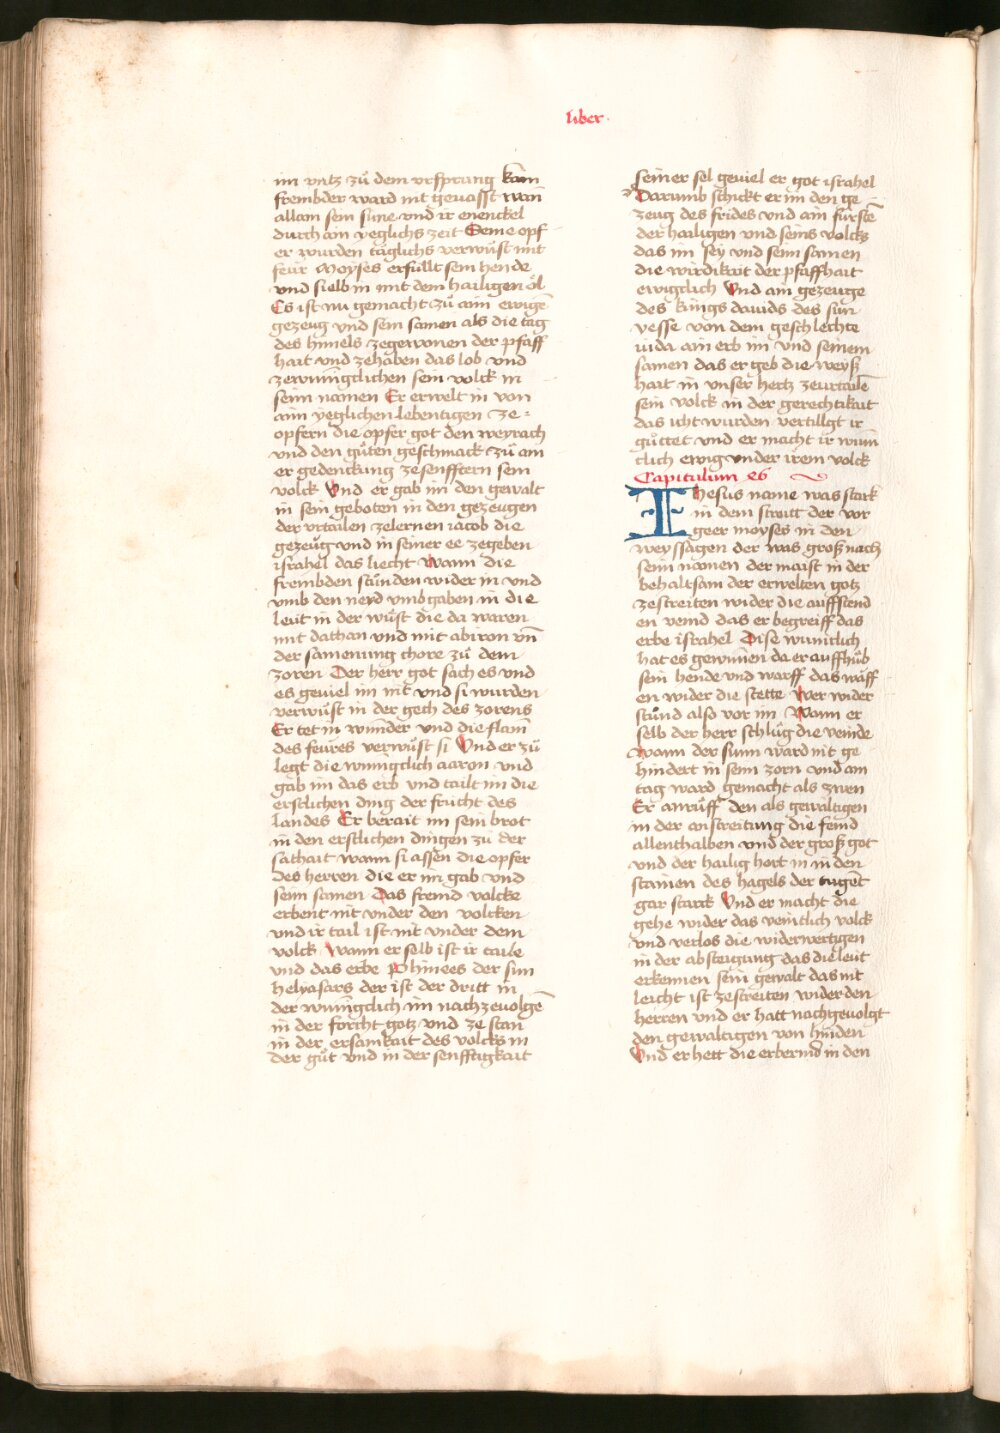 liber
im vntz zů dem vrsprung kain
frembder ward nit gevasst wan̄
allain sein süne vnd ir enenckel
durch ain yeglichs zeit Seine opf
er wurden täglichs verwůst mit
feür Moyses erfüllt sein hende
vnd sielb in mit dem hailigen öl
Es ist nu gemacht zů aim ewigē
gezeug vnd sein samen als die tag
des himels zegewonen der pfaff
hait vnd zehaben das lob vnd
zewunīgclichen sein volck in
seim namen Er erwelt in von
aim yeglichen lebentigen ze
opfern die opfer got den weyrach
vnd den gůten geschmack zů ain
er gedenckung zesenfftern sein
volck Vnd er gab im den gewalt
in sein geboten in den gezeugen
der vrtailen zelernen iacob die
gezeüg vnd in seiner ee zegeben
israhel das liecht Wann die
frembden stůnden wider in vnd
vmb den neyd vmbgaben in die
leüt in der wůst die da waren
mit dathan vnd mit abiron vn̄
der samenung chore zů dem
zoren Der herr got sach es vnd
es geviel im nit vnd si wurden
verwůst in der gech des zorens
Er tet in wunder vnd die flam̄
des feures verwůst si Vnd er zů
legt die wunigclich aaron vnd
gab im das erb vnd tailt im die
erstlichen ding der frücht des
landes Er berait im sein brot
in den erstlichen dingen zů der
sathait wann si assen die opfer
des herren die er im gab vnd
seim samen Das fremd volcke
erbent nit vnder den volcken
vnd ir tail ist nit vnder dem
volck Wann er selb ist ir taile
vnd das erbe Phinees der sun
helyasars der ist der dritt in
der wunīgclich im nachzevolgē
in der forcht gotz vnd ze stan
in der ersamkait des volcks in
der güt vnd in der senfftigkait
seiner sel geviel er got israhel
Darumb schickt er im den ge
zeug des frides vnd ain fürstē
der hailigen vnd seins volcks
das im sey vnd seim samen
die wirdikait der pfaffhait
ewigclich Vnd ain gezeuge
des kúngs dauids des sun
yesse von dem geschlechte
iuda ain erb im vnd seinem
samen das er geb die weyß
hait in vnser hertz zeurtailē
sein volck in der gerechtikait
das icht wurden vertillgt ir
gůttet vnd er macht ir wun̄
clich ewig vnder irem volck
Capitulum 46
IHesus name was stark
in dem streitt der vor
geer moyses in den
weyssagen der was groß nach
seim namen der maist in der
behaltsam der erwelten gotz
zestreiten wider die auffstend
en veind das er begreiff das
erbe israhel Dise wunīclich
hat es gewunnen da er auffhůb
sein hende vnd warff das waff
en wider die stette Wer wider
stůnd also vor im Wann er
selb der herr schlůg die veinde
Wann der sunn ward nit ge
hindert in seim zorn vnd ain
tag ward gemacht als zwen
Er anrůff den als gewaltigen
in der anstreitung die feind
allenthalben vnd der groß got
vnd der hailig hort in in den
stainen des hagels der tugēt
gar starck Vnd er macht die
gehe wider das veintlich volck
vnd verlos die widerwertigen
in der absteigung das die leüt
erkennen sein gewalt das nit
leicht ist zestreiten wider den
herren vnd er hatt nachgevolgt
den gewaltigen von hinden
Vnd er hett die erbermd in den